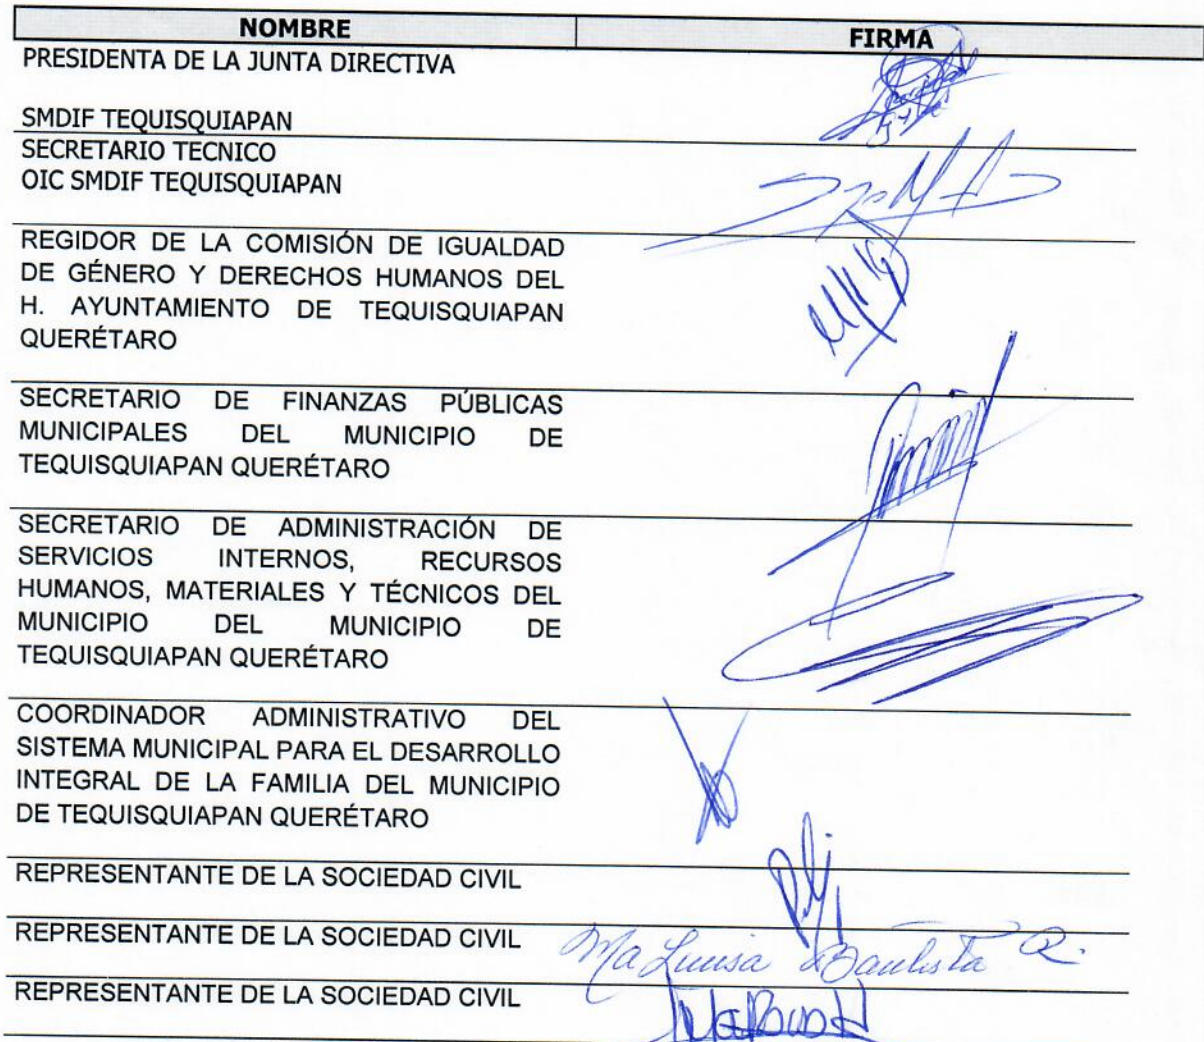 NOMBRE FIRMA
PRESIDENTA DE LA JUNTA DIRECTIVA
SMDIF TEQUISQUIAPAN
SECRETARIO TECNICO
OIC SMDIF TEQUISQUIAPAN
REGIDOR DE LA COMISIÓN DE IGUALDAD
DE GÉNERO Y DERECHOS HUMANOS DEL
H. AYUNTAMIENTO DE TEQUISQUIAPAN
QUERÉTARO
SECRETARIO DE FINANZAS PÚBLICAS
MUNICIPALES DEL MUNICIPIO DE
TEQUISQUIAPAN QUERÉTARO
SECRETARIO DE ADMINISTRACIÓN DE
SERVICIOS INTERNOS, RECURSOS
HUMANOS, MATERIALES Y TÉCNICOS DEL
MUNICIPIO DEL MUNICIPIO DE
TEQUISQUIAPAN QUERÉTARO
COORDINADOR ADMINISTRATIVO DEL
SISTEMA MUNICIPAL PARA EL DESARROLLO
INTEGRAL DE LA FAMILIA DEL MUNICIPIO
DE TEQUISQUIAPAN QUERÉTARO
REPRESENTANTE DE LA SOCIEDAD CIVIL
REPRESENTANTE DE LA SOCIEDAD CIVIL Ma Luisa Bautista R.
REPRESENTANTE DE LA SOCIEDAD CIVIL